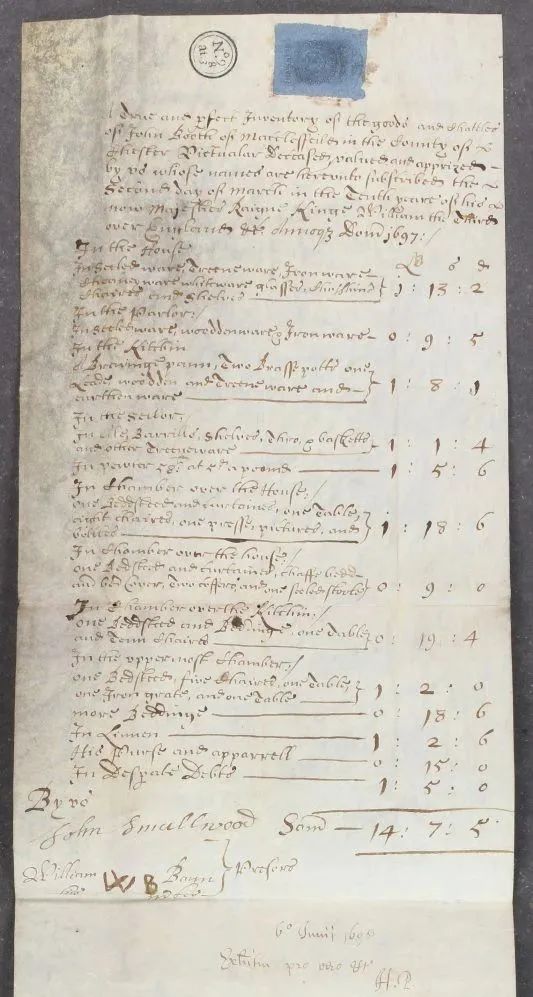 A True and pfect Inventory of the goods and Chattles
of John Booth of Macclesfeild in the County of
Chester Victualar Deceased, valued and apprized
by us whose names are hereunto subscribed the
Second day of March in the Tenth yeare of his
now Majesties Raigne Kinge William the Third
over England &c Annoqz Dom 1697:/
In the House li s d
In Seeled ware, Treeneware, Ironware
whiteware glasses, Cushians
Chaires and Shelves 1 : 13 : 2
In the Parlor:/
In Seeleware, woodenware & Ironware 0 : 9 : 5
In the Kitchin
A Brewinge pann, Two Brasse potts one
Leade, wooden and Treene ware and
earthen ware 1 : 8 : 1
In the Sellor:/
In Ale, Barrills, Shelves, & basketts
and other Treeneware 1 : 1 : 4
In pewter at a pound 1 : 5 : 6
In Chamber over the House:/
one Beddsteed and curtaines, one Table,
eight chaires, one presse, pictures, and
1 : 18 : 6
In Chamber over the house:/
one Bedsteed and curtaines, chaffe bedd
and bed Cover, Two coffers, and one seeled 0 : 9 : 0
In Chamber over the Kitchin:/
one Beddsteed and Beddinge, one Table
and Tenn Chaires 0 : 19 : 4
In the uppermost Chamber:/
one Bedsteed, five Chaires, one Table,
one Iron grate, and one Table 1 : 2 : 0
more Beddinge 0 : 18 : 6
In Linnen 1 : 2 : 6
His Purse and apparrell 0 : 15 : 0
In Desperate Debts 1 : 5 : 0
By us
John Smallwood Som 14 : 7 : 5
William B Prisers
his
6o Junij 169
pro vero &c
H.P.